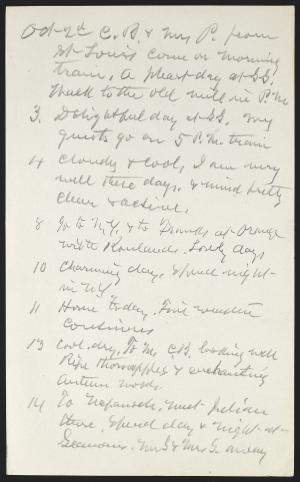 Oct 2d C. B. & Mrs P. from
St Louis come on morning
train. A pleasant day at S.S.
Walk to the old mill in P.M.
3. Delightful day at S.S. My
guests go on 5 P.M. train
4 Cloudy & cool, I am very
well these days. & mind pretty
clear & active.
8 Go to N.Y. & to Franks at Orange
with Rowlands. Lovely days
10 Charming day, spend night
in N.Y.
11 Home to day. Fine weather
continues
13 Cool, dry. To Mr C.B. looking well
Ripe thornapples & enchanting
autumn woods.
14 To Nepanoch. Meet Julian
there. Spend day & night at
Seamans. Mr S & Mrs S. away